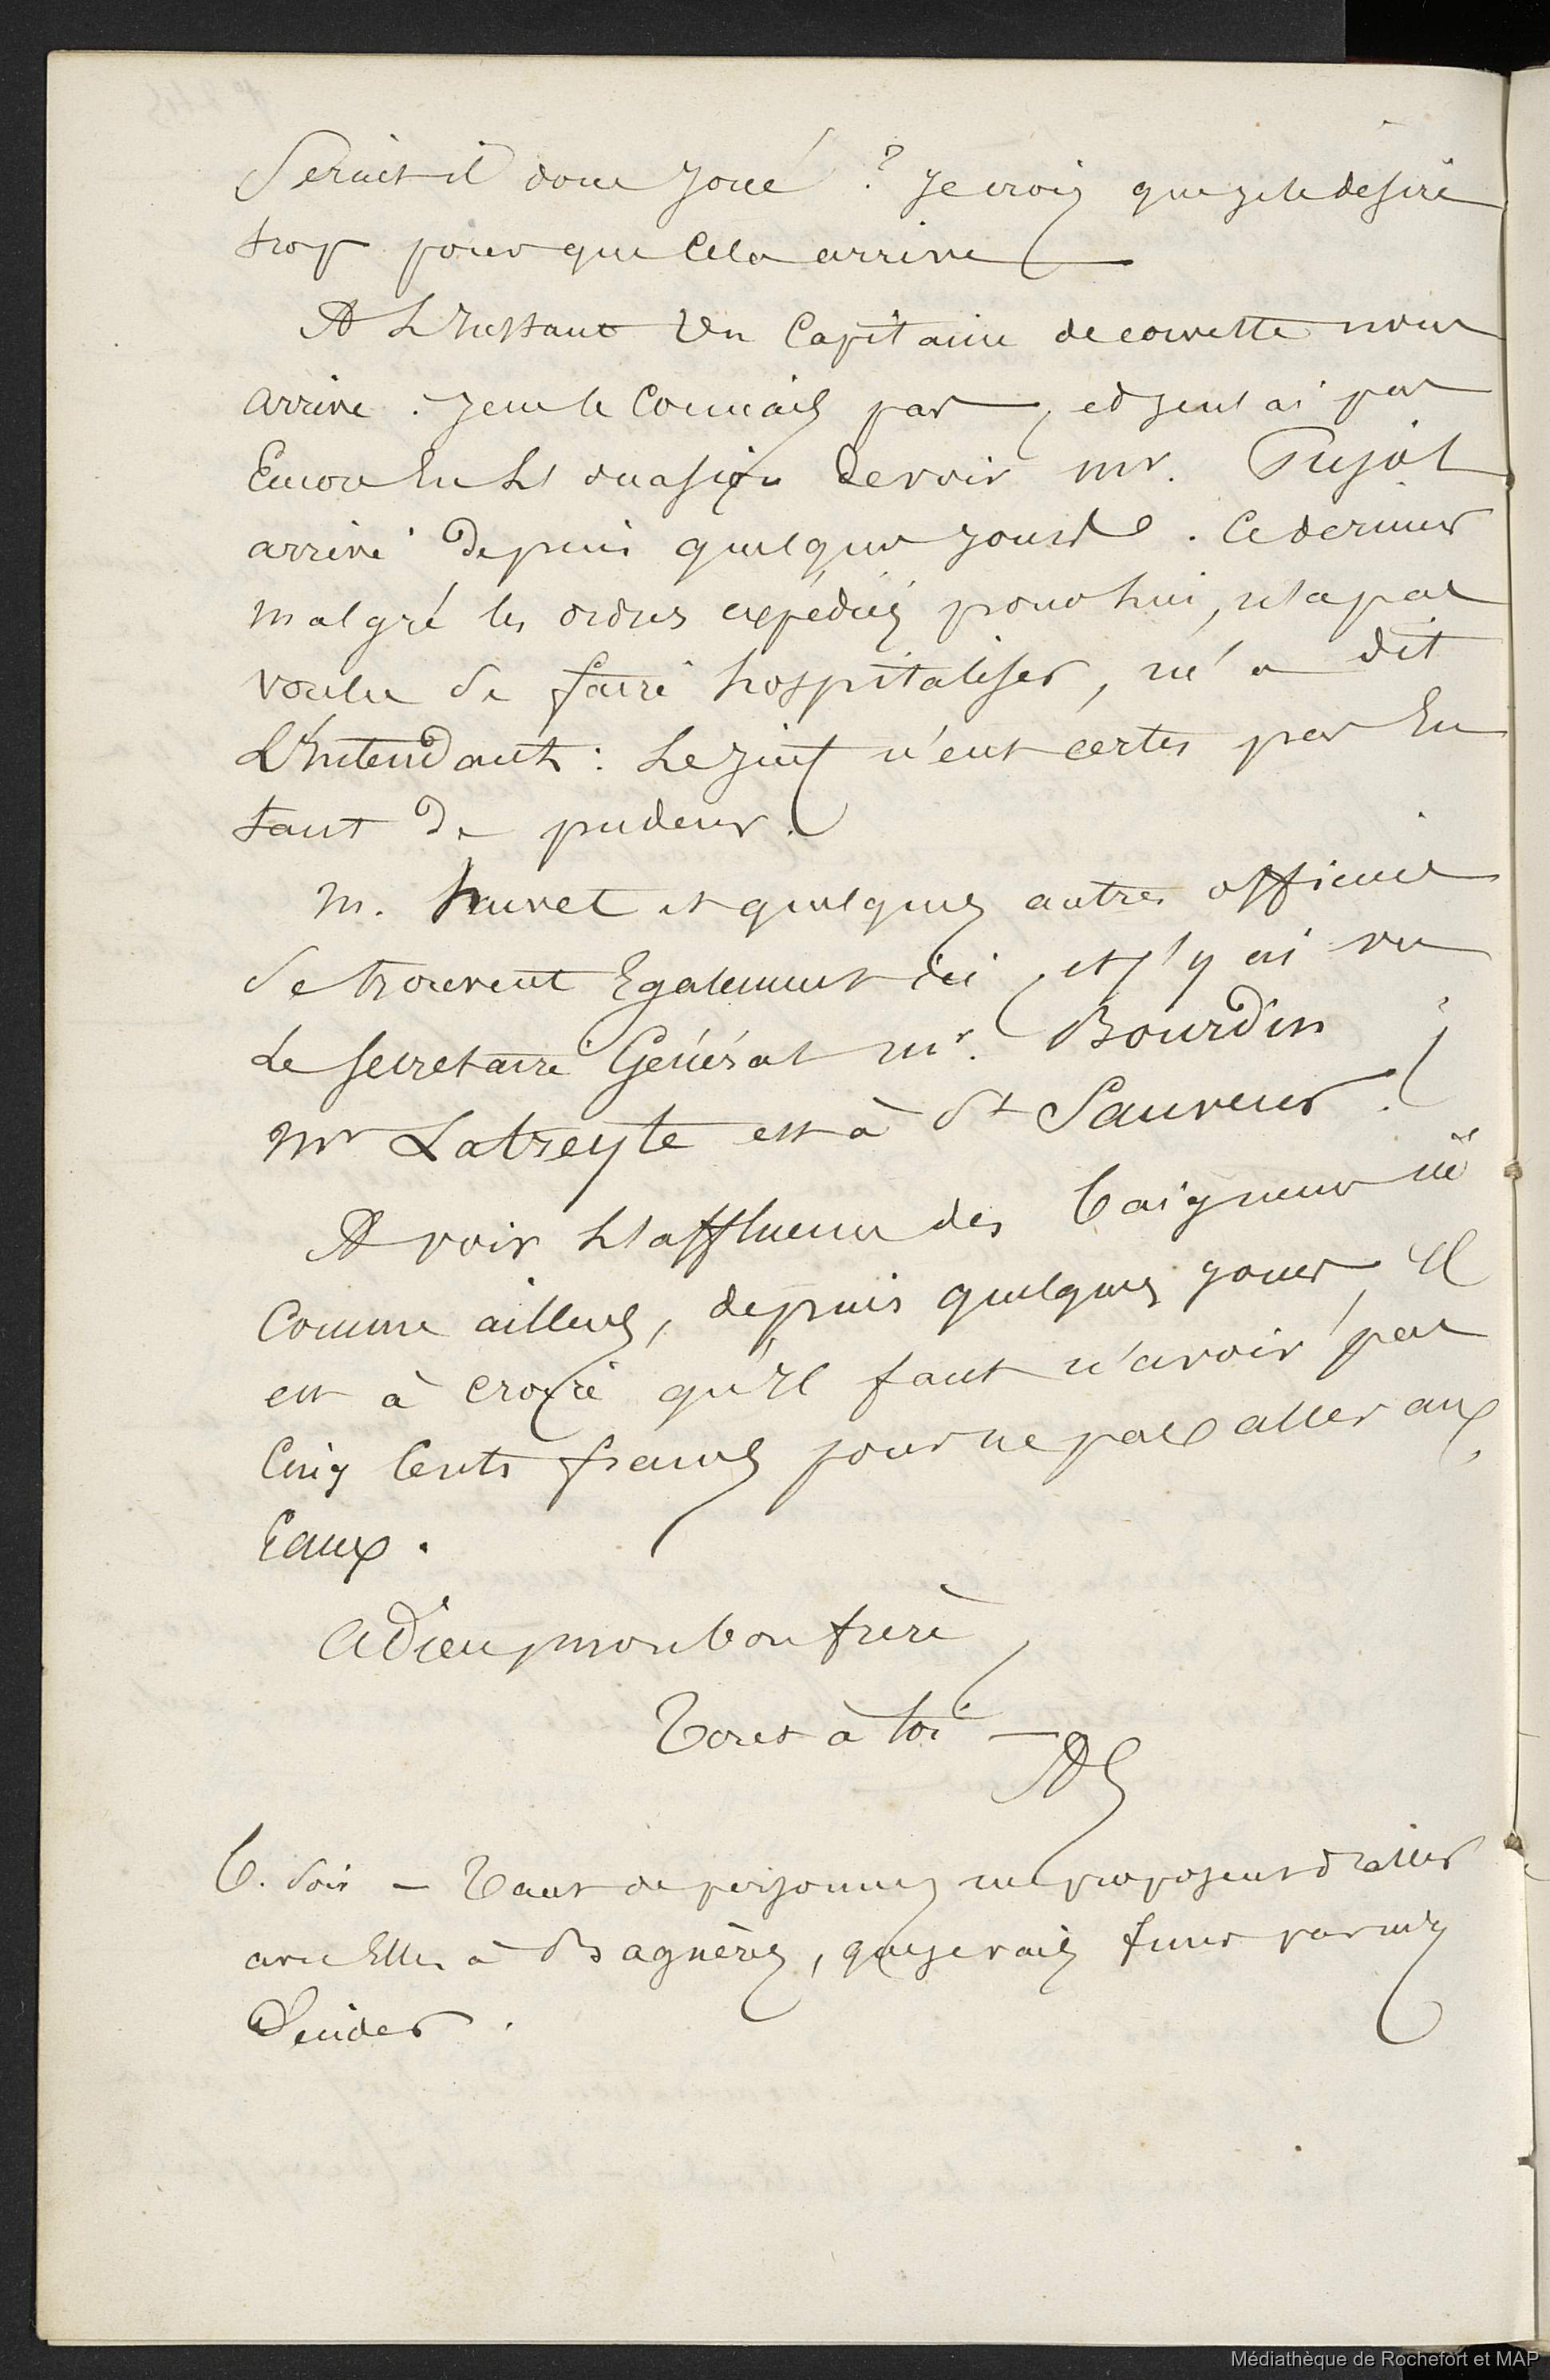 Serait-il donc joué ? Je crois que je le desire
trop pour que cela arrive
A L'Instant Un Capitaine de corvette nous
arrive. Je ne le Connais pas, et je n'ai pas
Encore Eu L'occasion de voir mr. Pujol
arrivé depuis quelques jours. Ce dernier
malgré les ordres expédiés pour lui, n'a pas
voulu se faire hospitaliser, m'a dit
L'Intendant : Le Juif n'eut certes pas Eu
tant de pudeur.
m. hauvet et quelques autres officiers
se trouvent Egalement ici, et j'y ai vu
Le secretaire Général mr. Bourdin ;
mr Latreyte est à St Sauveur.
A voir L'affluence des baigneurs ici
Comme ailleurs, depuis quelques jours, Il
est à croire qu'Il faut n'avoir pas
Cinq Cents francs pour ne pas aller aux
Eaux.
Adieu mon bon frère,
Tout à toi —
6. soir — Tant de personnes me proposent d'aller
avec Elles à Bagnères, que je vais finir par m'y
Décider.
Médiathèque de Rochefort et MAP